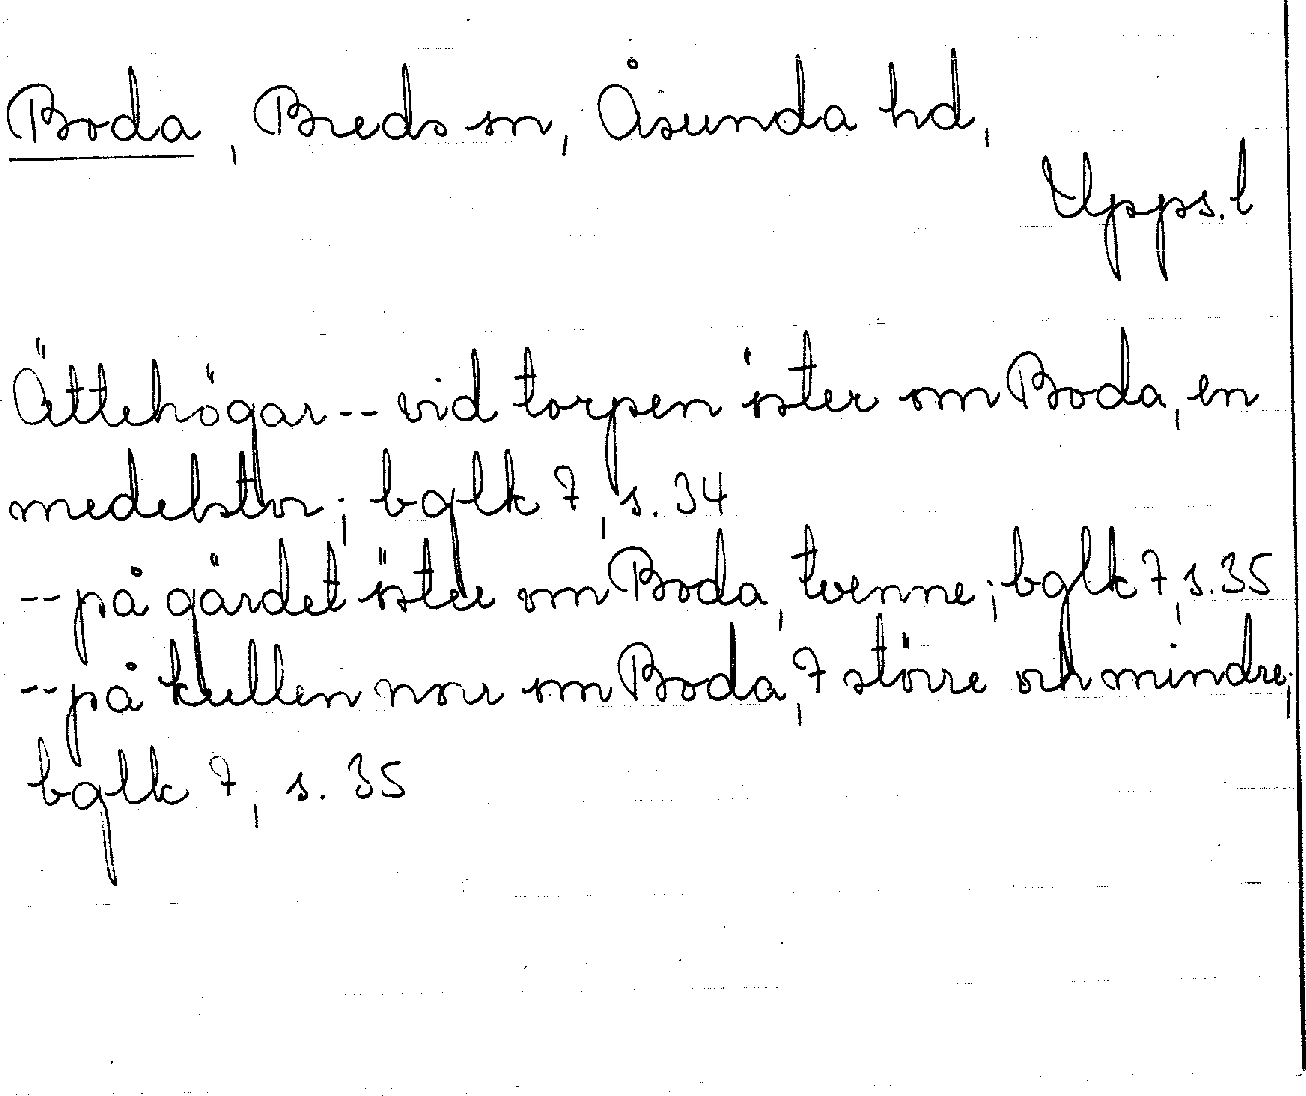 Boda, Breds sn, Åsunda hd,
Upps.l
Ättehögar -- vid torpen öster om Boda, en
medelstor; bglk 7, s. 34
-- på gärdet öster om Boda, tvenne; bglk 7, s. 35
-- på kullen norr om Boda, 7 större och mindre;
bglk 7, s. 35